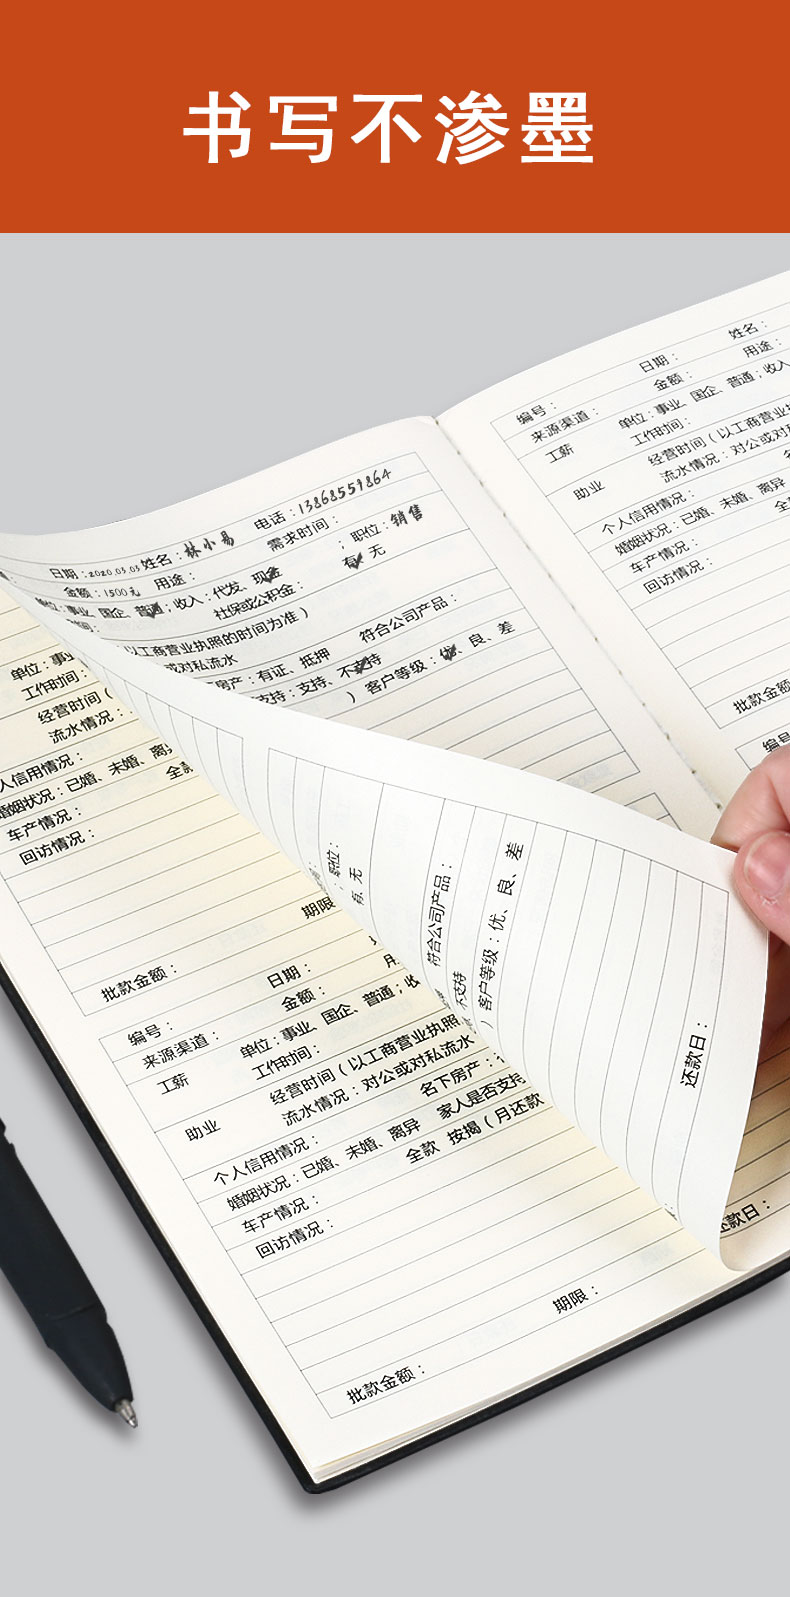 书写不渗墨
日期：2020.03.03 姓名：林小易 电话：13868559864
金额：1500元 用途： 需求时间：
单位：事业、国企、普通；收入：代发、现金 ；职位：销售
社保或公积金： 有、无
以工商营业执照的时间为准）
或对私流水
房产：有证、抵押 符合公司产品：
支持：支持、不支持
） 客户等级：优、良、差
单位：事业
工作时间：
经营时间（
流水情况：
个人信用情况：
婚姻状况：已婚、未婚、离异
车产情况： 全款
回访情况：
期限
批款金额：
编号： 日期：
来源渠道： 金额：
工薪 单位：事业、国企、普通；收
工作时间：
助业 经营时间（以工商营业执照
流水情况：对公或对私流水
个人信用情况： 名下房产：
婚姻状况：已婚、未婚、离异 家人是否支持
车产情况： 全款 按揭（月还款
回访情况：
期限：
批款金额：
职位：
有、无
符合公司产品：
不支持
）客户等级：优、良、差
还款日：
还款日：
编号： 日期： 姓名：
来源渠道： 金额： 用途：
工薪 单位：事业、国企、普通；收入
工作时间：
助业 经营时间（以工商营业执
流水情况：对公或对
个人信用情况：
婚姻状况：已婚、未婚、离异
车产情况：
回访情况：
批款金额
编号